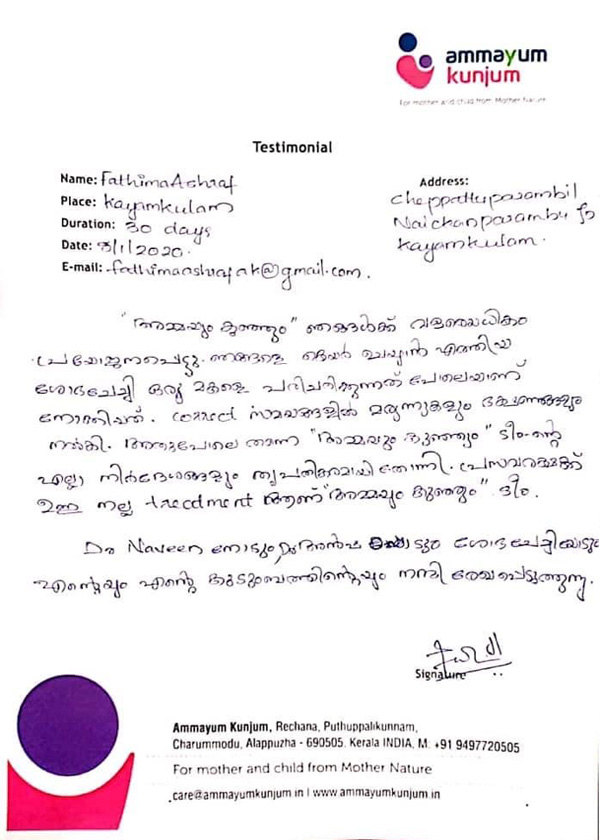 ammayum
kunjum
For mother and child from Mother Nature
Testimonial
Name: Fathima Ashraf
Place: Kayamkulam
Duration: 30 days
Date: 3/1/2020.
E-mail: fathimaashrafak@gmail.com.
Address:
Cheppattuparambil
Naichanparambu
Kayamkulam.
"അമ്മയും കുഞ്ഞും" ഞങ്ങൾക്ക് വളരെയധികം
പ്രയോജനപ്പെട്ടു. ഞങ്ങളെ കെയർ ചെയ്യാൻ എത്തിയ
ശോഭചേച്ചി ഒരു മകളെ പരിചരിക്കുന്നത് പോലെയാണ്
നോക്കിയത്. correct സമയങ്ങളിൽ മരുന്നുകളും ഭക്ഷണങ്ങളും
നൽകി. അതുപോലെ തന്നെ "അമ്മയും കുഞ്ഞും" ടീം-ന്റെ
എല്ലാ നിർദേശങ്ങളും തൃപ്തികരമായി തോന്നി. പ്രസവരക്ഷക്ക്
ഉള്ള നല്ല treatment ആണ് "അമ്മയും കുഞ്ഞും" ടീം.
Dr Naveen നോടും ശോഭചേച്ചിയോടും
എന്റെയും എന്റെ കുടുംബത്തിന്റെയും നന്ദി രേഖപ്പെടുത്തുന്നു.
Signature
Ammayum Kunjum, Rechana, Puthuppalikunnam,
Charummodu, Alappuzha - 690505. Kerala INDIA. M: +91 9497720505
For mother and child from Mother Nature
care@ammayumkunjum.in | www.ammayumkunjum.in